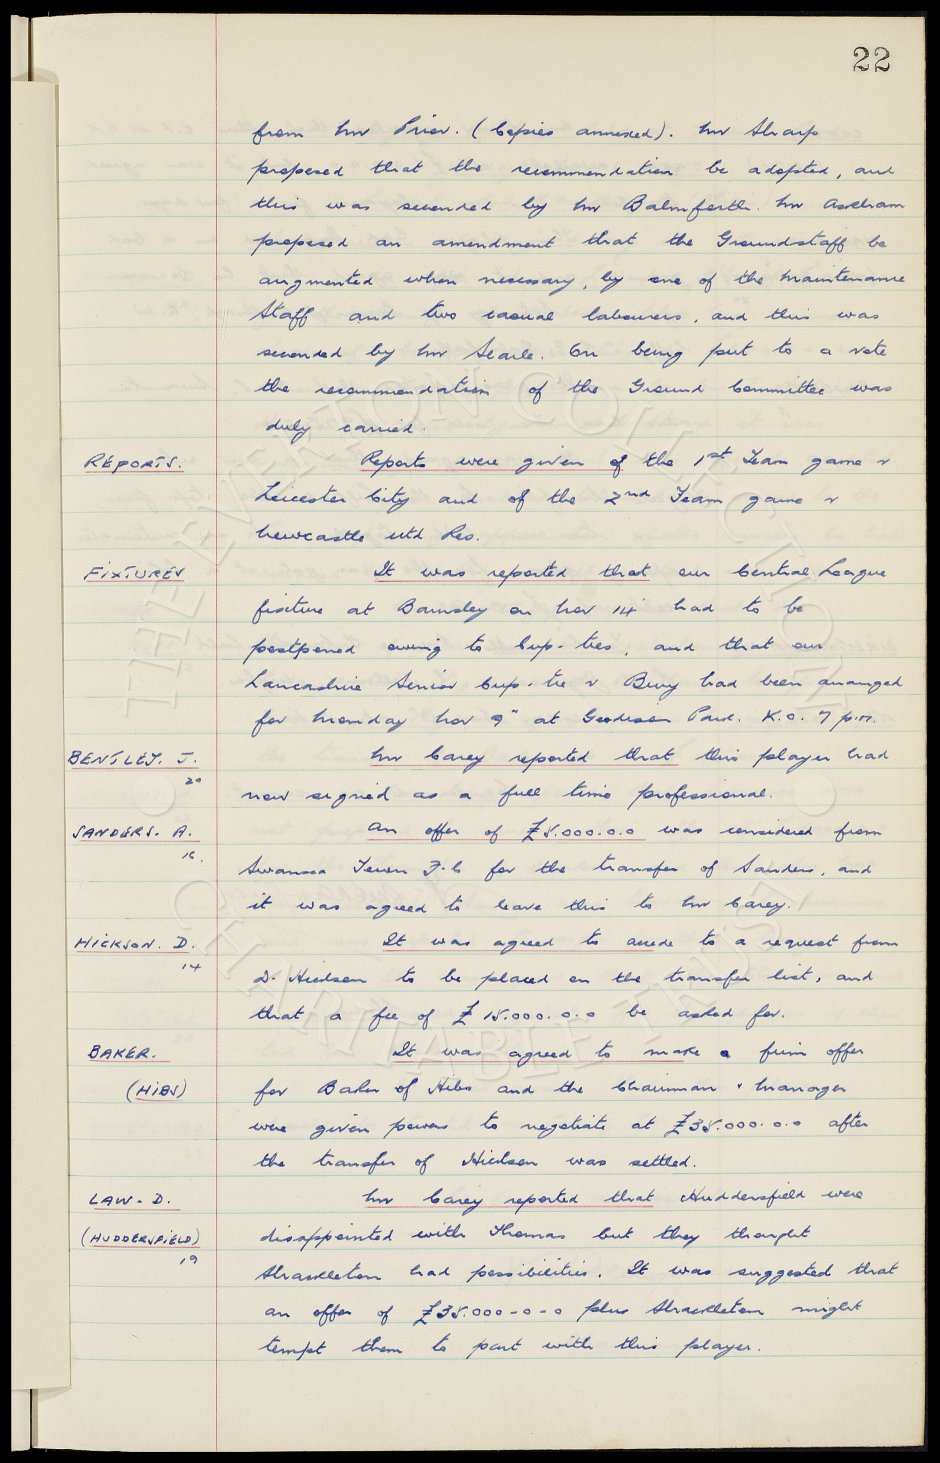 22
from Mr Prior. (Copies annexed). Mr Sharp
proposed that the recommendation be adopted, and
this was seconded by Mr Balmforth. Mr Askham
proposed an amendment that the Groundstaff be
augmented when necessary, by one of the Maintenance
Staff and two casual labourers, and this was
seconded by Mr Searle. On being put to a vote
the recommendation of the Ground Committee was
duly carried.
REPORTS. Reports were given of the 1st Team game v
Leicester City and of the 2nd Team game v
Newcastle Utd Res.
FIXTURES It was reported that our Central League
fixture at Barnsley on Nov 14 had to be
postponed owing to Cup-ties, and that our
Lancashire Senior Cup-tie v Bury had been arranged
for Monday Nov 9" at Goodison Park. K.O. 7 p.m.
BENTLEY. J. Mr Carey reported that this player had
20 now signed as a full time professional.
SANDERS. A. An offer of £5.000.0.0 was considered from
16. Swansea Town F.C for the transfer of Sanders, and
it was agreed to leave this to Mr Carey.
HICKSON. D. It was agreed to accede to a request from
14 D. Hickson to be placed on the transfer list, and
that a fee of £15.000.0.0 be asked for.
BAKER. It was agreed to make a firm offer
(HIBS) for Baker of Hibs and the Chairman & Manager
were given powers to negotiate at £35.000.0.0 after
the transfer of Hickson was settled.
LAW. D. Mr Carey reported that Huddersfield were
(HUDDERSFIELD) disappointed with Thomas but they thought
19 Shackleton had possibilities. It was suggested that
an offer of £35.000-0-0 plus Shackleton might
tempt them to part with this player.
THE EVERTON COLLECTION CHARITABLE TRUST